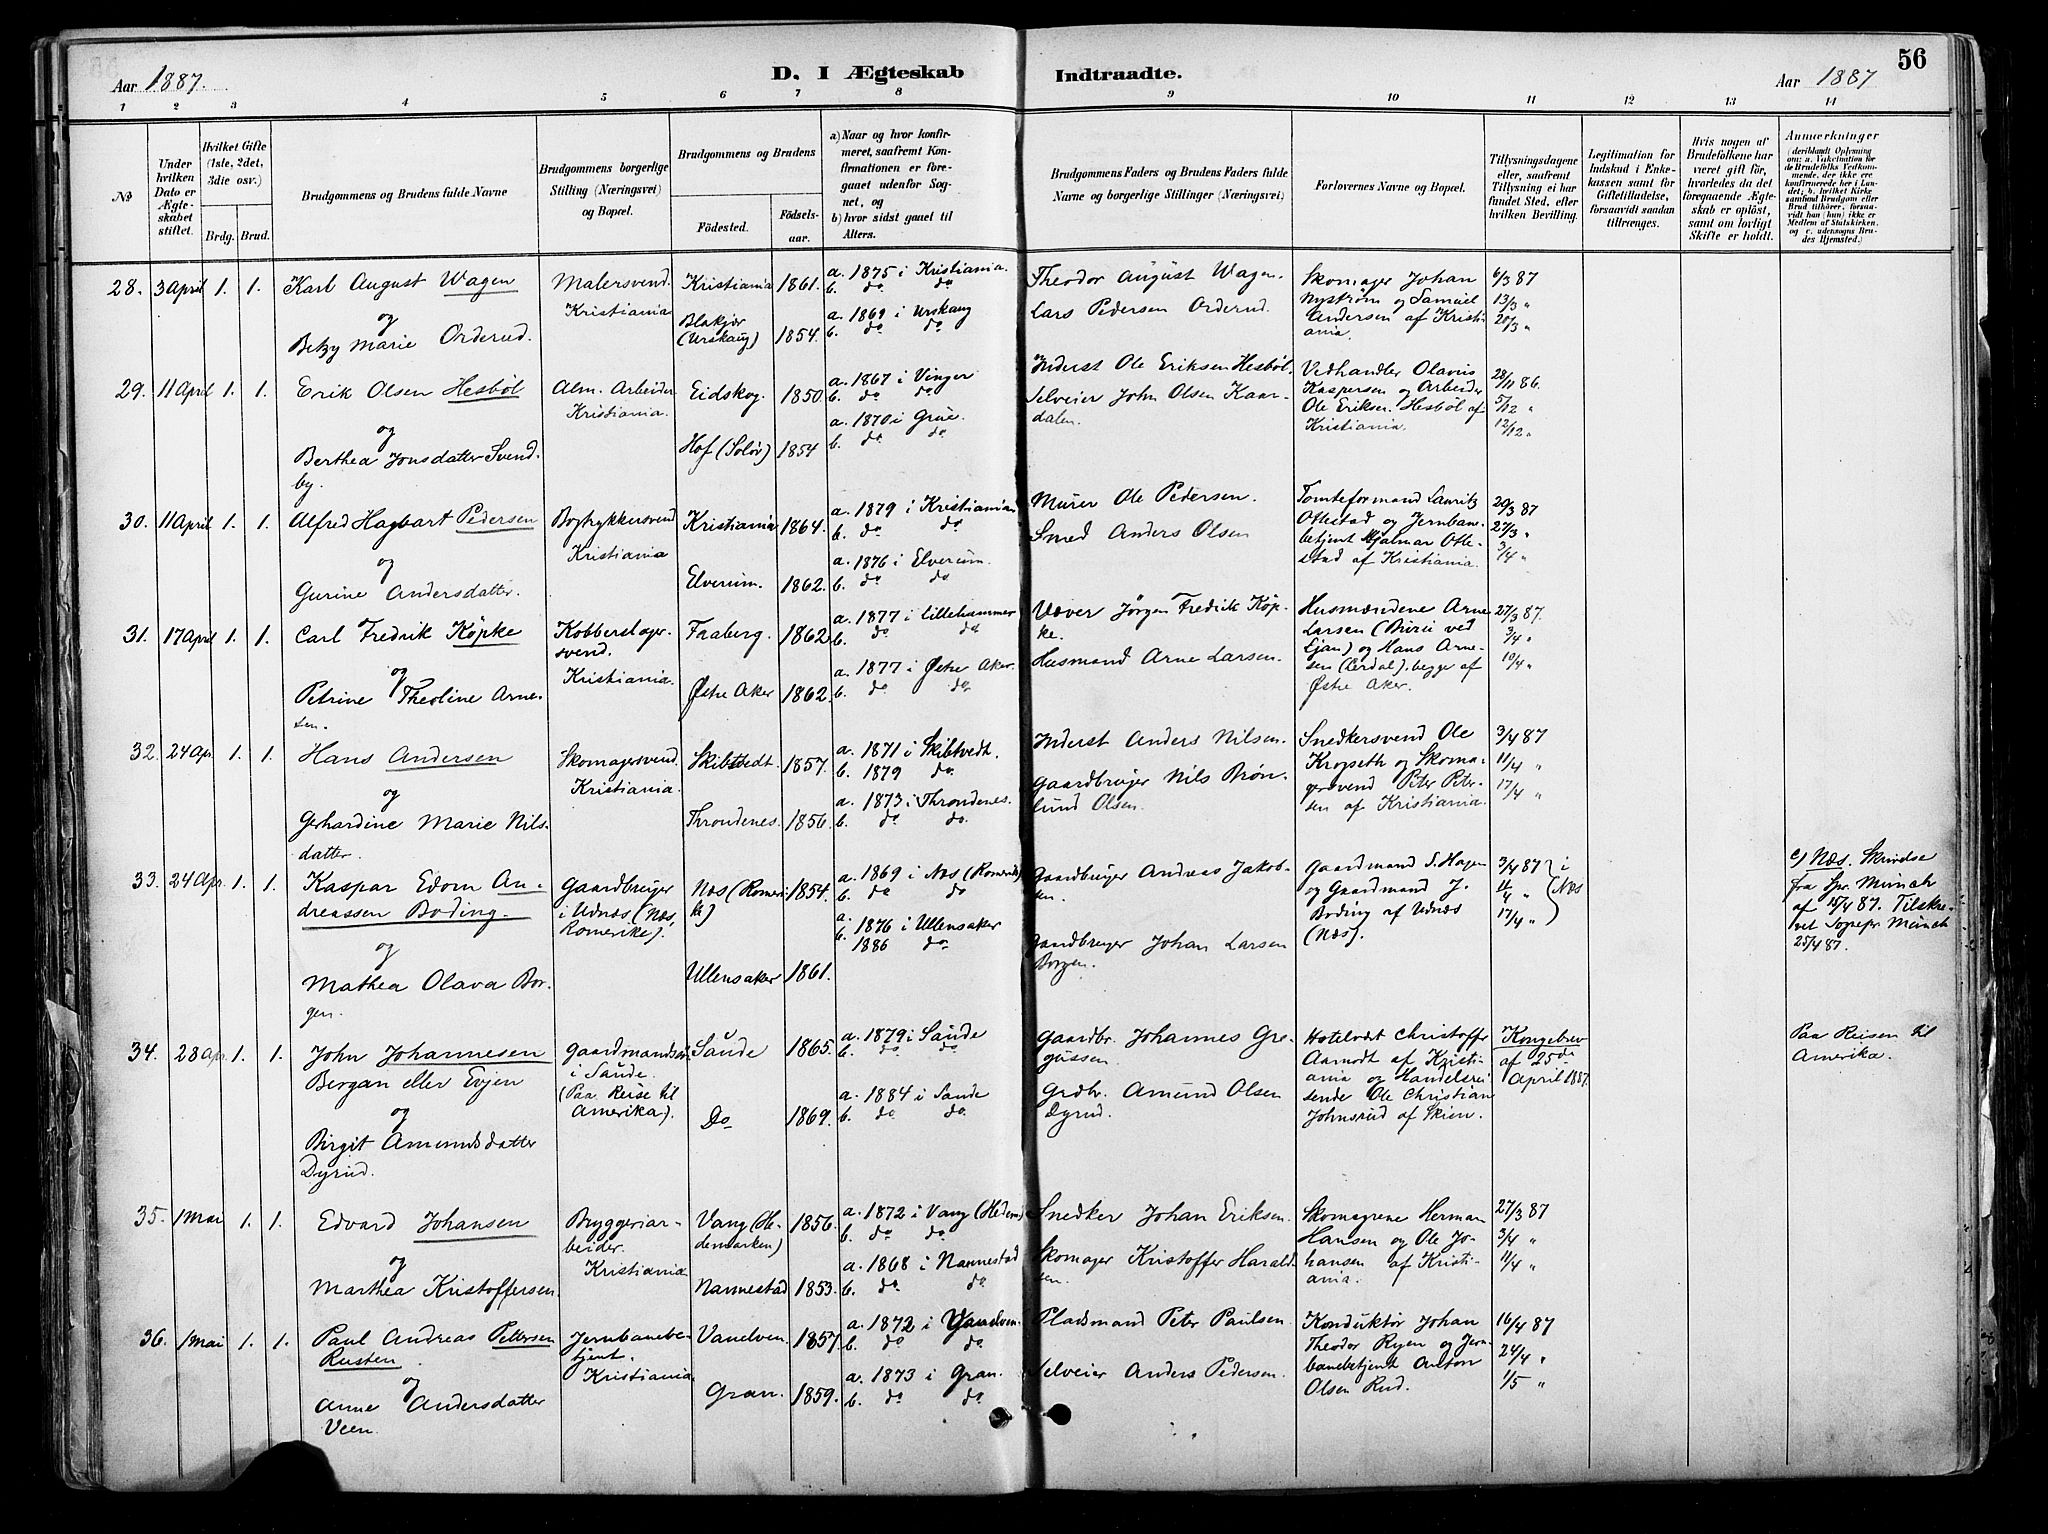 56
Aar 1887.
D. I Ægteskab Indtraadte.
Aar 1887
1 2 3 4 5 6 7 8 9 10 11 12 13 14
No
Under hvilken Dato er Ægteskabet stiftet.
Hvilket Gifte (1ste, 2det, 3die osv.)
Brdg. Brud.
Brudgommens og Brudens fulde Navne
Brudgommens borgerlige Stilling (Næringsvei) og Bopæl.
Brudgommens og Brudens
Födested. Födselsaar.
a) Naar og hvor konfirmeret, saafremt Konfirmationen er foregaaet udenfor Sognet, og
b) hvor sidst gaaet til Alters.
Brudgommens Faders og Brudens Faders fulde Navne og borgerlige Stillinger (Næringsvei)
Forlovernes Navne og Bopæl.
Tillysningsdagene eller, saafremt Tillysning ei har fundet Sted, efter hvilken Bevilling.
Legitimation for Indskud i Enkekassen samt for Giftetilladelse, forsaavidt saadan tiltrænges.
Hvis nogen af Brudefolkene har været gift för, hvorledes da det foregaaende Ægteskab er oplöst, samt om lovligt Skifte er holdt.
Anmærkninger (deriblandt Oplysning om: a. Vakcination for de Brudefolks Vedkommende, der ikke ere konfirmerede her i Landet; b. hvilket Kirkesamfund Brudgom eller Brud tilhörer, forsaavidt han (hun) ikke er Medlem af Statskirken, og c. udensogns Brudes Hjemsted.)
28. 3 April 1. 1. Karl August Wagen
og
Betzy Marie Orderud.
Malersvend. Kristiania
Kristiania 1861.
Blakjer (Urskaug) 1854.
a. 1875 i Kristiania.
b. do do
a. 1869 i Urskaug
b. do do
Theodor August Wagen.
Lars Pedersen Orderud.
Skomager Johan Nyström og Samuel Andersen af Kristiania.
6/3 87
13/3 "
20/3 "
29. 11 April 1. 1. Erik Olsen Hesböl
og
Berthea Jonsdatter Svendby.
Alm. Arbeider Kristiania.
Eidskog. 1850.
Hof (Solör) 1854
a. 1867 i Vinger
b. do do
a. 1870 i Grue.
b. do do
Inderst Ole Eriksen Hesböl.
Selveier John Olsen Kaardalen.
Vedhandler Olavus Kaspersen og Arbeider Ole Eriksen Hesböl af Kristiania.
28/11 86.
5/12 "
12/12 "
30. 11 April 1. 1. Alfred Hagbart Pedersen
og
Gurine Andersdatter.
Bogtrykkersvend Kristiania
Kristiania 1864.
Elverum. 1862.
a. 1879 i Kristiania
b. do do
a. 1876 i Elverum.
b. do do
Murer Ole Pedersen.
Smed Anders Olsen
Tomteformand Lauritz Ottestad og Jernbanbetjent Hjalmar Ottestad af Kristiania.
20/3 87
27/3 "
3/4 "
31. 17 April 1. 1. Carl Fredrik Köpke
og
Petrine Theoline Arnesen.
Kobberslagersvend. Kristiania.
Faaberg. 1862.
Østre Aker 1862.
a. 1877 i Lillehammer
b. do do
a. 1877 i Østre Aker.
b. do do
Væver Jörgen Fredrik Köpke.
Husmand Arne Larsen.
Husmændene Arne Larsen (Burie ved Ljan) og Hans Arnesen (Ærdal), begge af Østre Aker.
27/3 87.
3/4 "
10/4 "
32. 24 Apr. 1. 1. Hans Andersen
og
Gerhardine Marie Nilsdatter.
Skomagersvend. Kristiania.
Skibtvedt. 1857.
Throndenes. 1856.
a. 1871 i Skibtvedt.
b. 1879 do.
a. 1873 i Throndenes.
b. do do.
Inderst Anders Nilsen.
Gaardbruger Nils Brönlund Olsen.
Snedkersvend Ole Kropseth og Skomagersvend Peter Petersen af Kristiania.
3/4 87
11/4 "
17/4 "
33. 24 Apr. 1. 1. Kaspar Edom Andreassen Boding.
og
Mathea Olava Borgen.
Gaardbruger i Udnæs (Næs, Romerike).
Næs (Romerike) 1854.
Ullensaker 1861.
a. 1869 i Næs (Romerike)
b. do do
a. 1876 i Ullensaker
b. 1886 do.
Gaardbruger Andreas Jakobsen.
Gaardbruger Johan Larsen Borgen.
Gaardmand S. Hagen og Gaardmand J. Boding af Udnæs (Næs).
3/4 87
11/4 "
17/4 "
i Næs
c) Næs. Skrivelse fra Spr. Münch af 15/4 87. Tilskrevet Sognepr Münch 25/4 87.
34. 28 Apr. 1. 1. John Johannesen Bergan eller Evjen
og
Birgit Amundsdatter Dyrud.
Gaardmandssön i Saude. (Paa Reise til Amerika).
Saude 1865.
Do 1869.
a. 1879 i Saude
b. do do.
a. 1884 i Saude
b. do do.
Gaardbr. Johannes Gregussen.
Grdbr. Amund Olsen Dyrud.
Hotelvært Christoffer Aamodt af Kristiania og Handelsreisende Ole Christian Johnsrud af Skien.
Kongebrev af 25de April 1887.
Paa Reisen til Amerika.
35. 1 Mai 1. 1. Edvard Johansen
og
Marthea Kristoffersen.
Bryggeriarbeider. Kristiania
Vang (Hedemarken) 1856.
Nannestad 1853.
a. 1872 i Vang (Hedem)
b. do do.
a. 1868 i Nannestad
b. do do.
Snedker Johan Eriksen.
Skomager Kristoffer Haraldsen.
Skomagrene Herman Hansen og Ole Johansen af Kristiania.
27/3 87
3/4 "
11/4 "
36. 1 Mai 1. 1. Paul Andreas Pettersen Rusten.
og
Anne Andersdatter Veen.
Jernbanebetjent. Kristiania
Vanelven 1857.
Gran. 1859.
a. 1872 i Vanelven
b. do do.
a. 1873 i Gran.
b. do do.
Pladsmand Peter Paulsen.
Selveier Anders Pedersen.
Konduktör Johan Theodor Ryen og Jernbanebetjent Anton Olsen Rud.
16/4 87
24/4 "
1/5 "